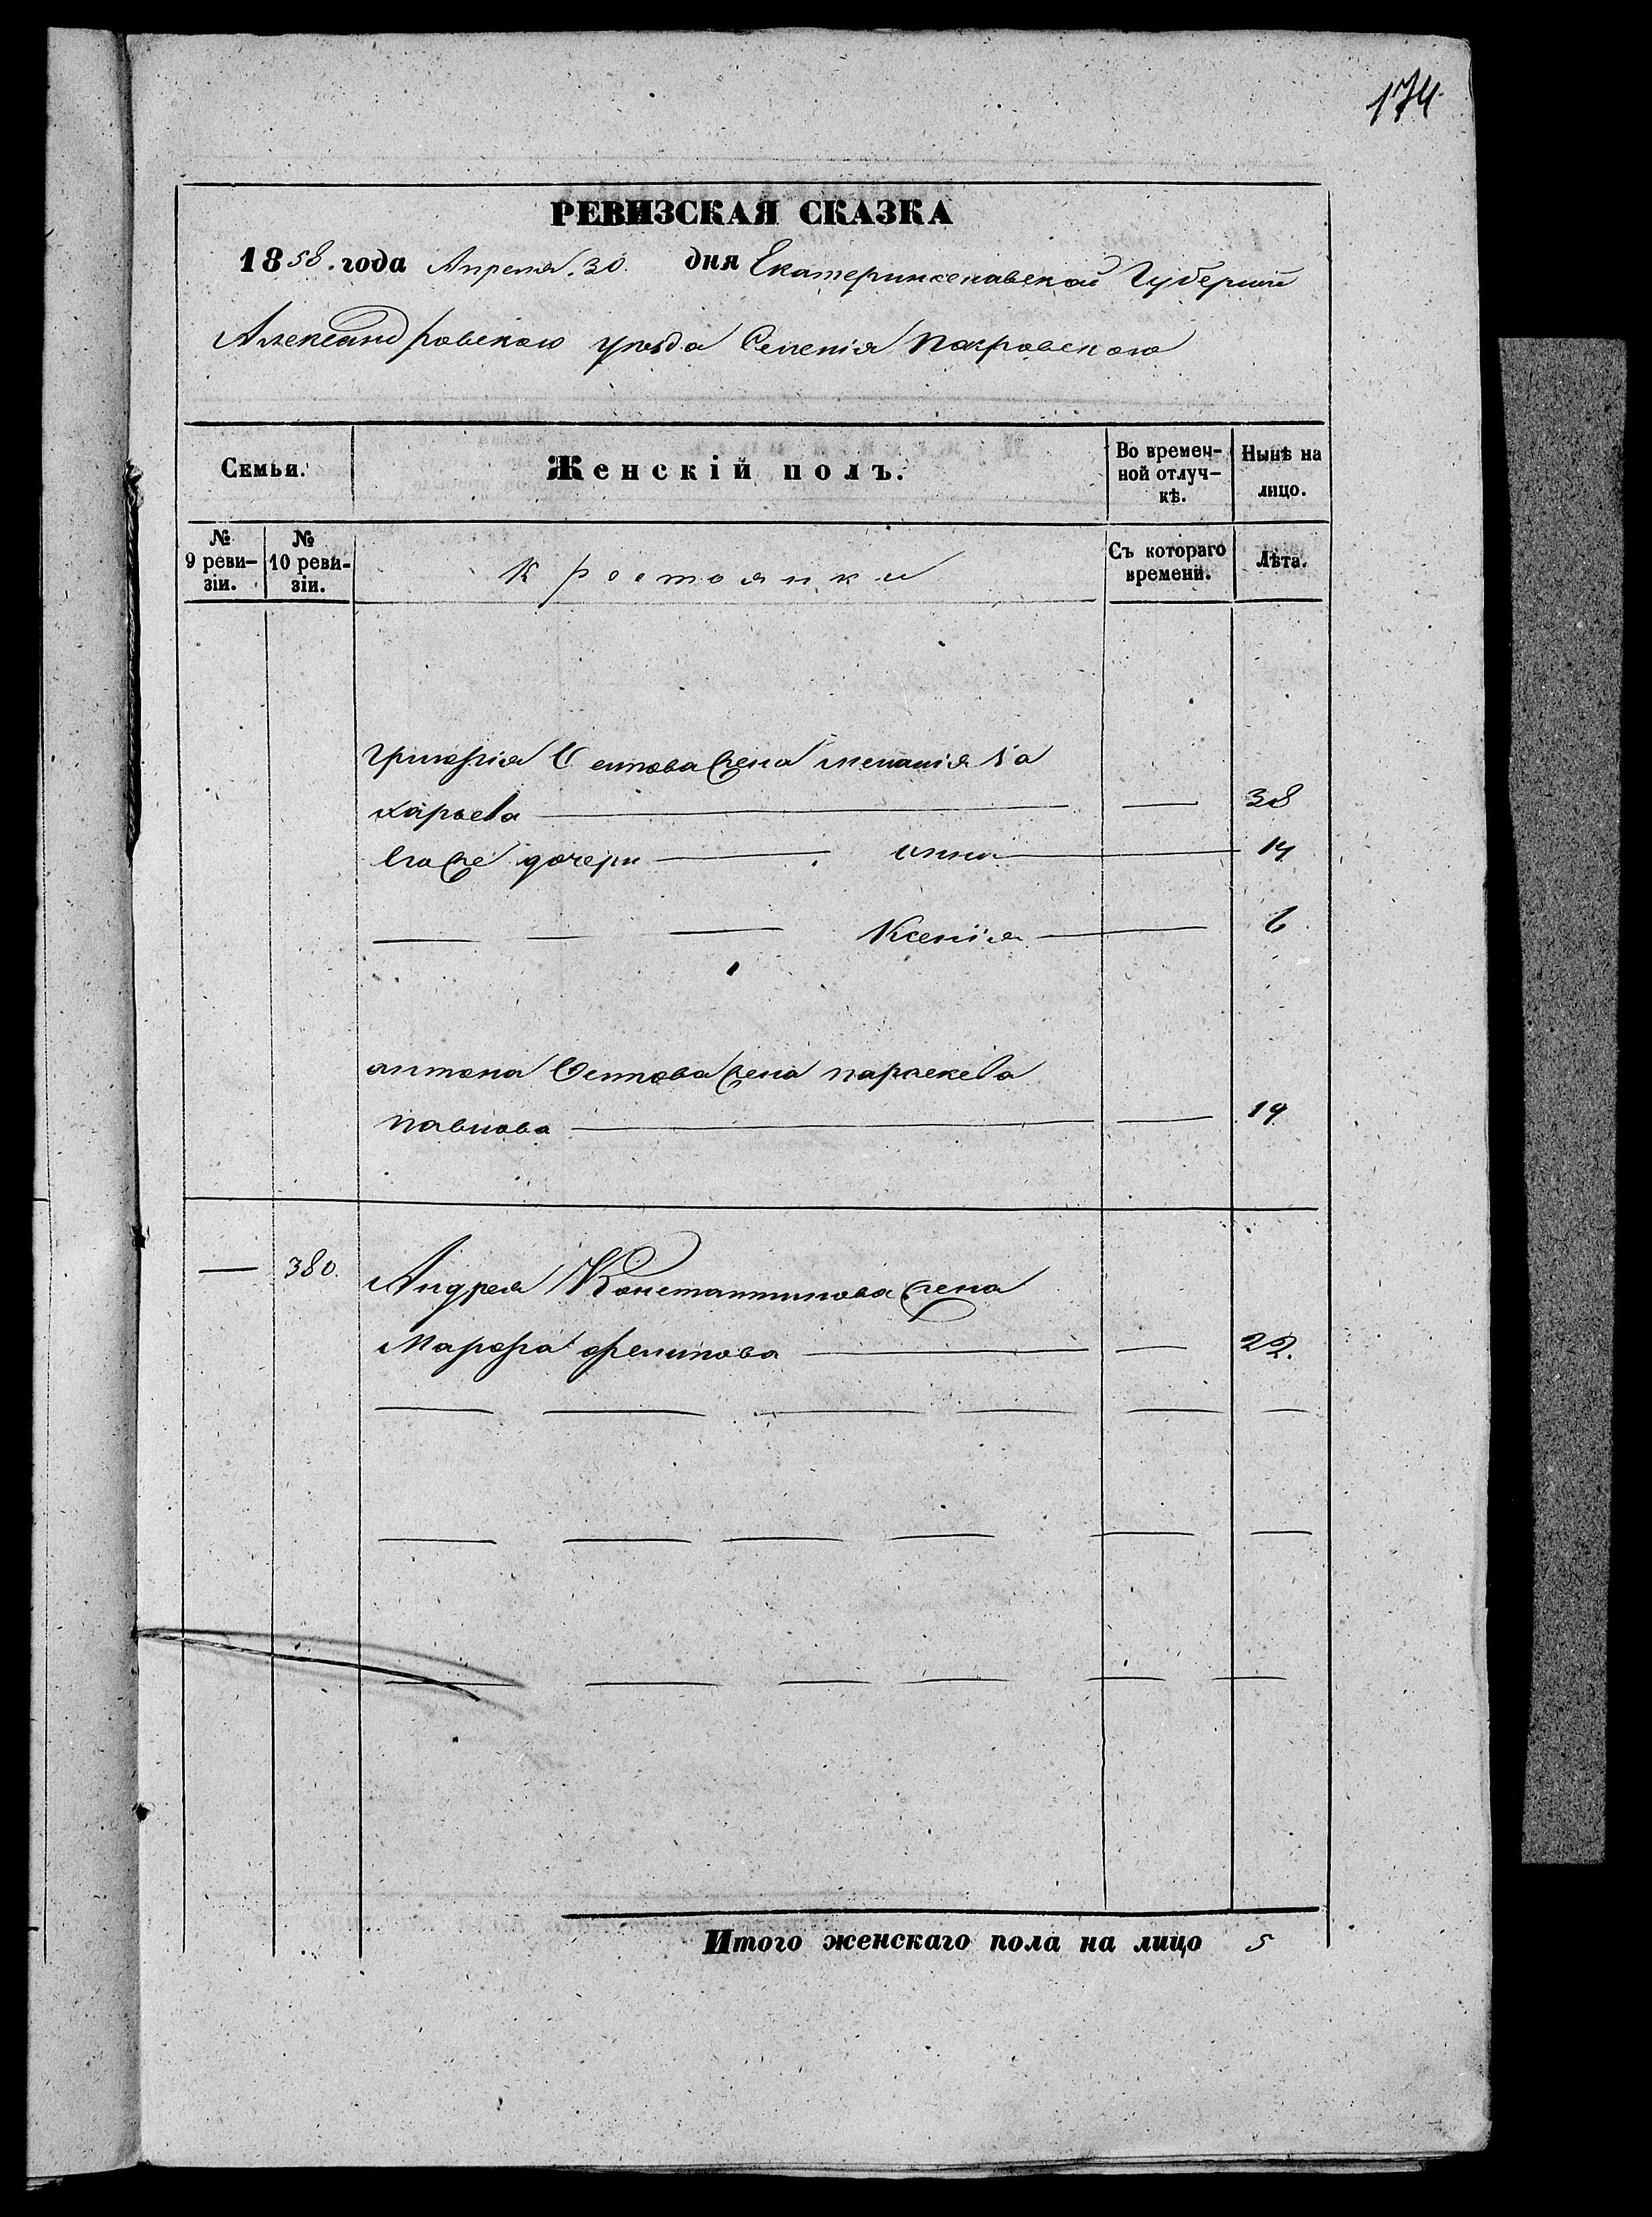 174
РЕВИЗСКАЯ СКАЗКА
1858. года Апреля 30. дня Екатеринославской Губернии
Александровского уезда Селенія Покровского
Семьи. Женскій полъ. Во времен-ной отлуч-кѣ. Нынѣ на лицо.
№ 9 реви-зіи. № 10 реви-зіи. Крестоянки Съ котораго времени. Лѣта.
Григорія Осипова жена меланія За
харьева — — 38
Его же дочери — анна — 14
— — — Ксенія — 6
антона Осипова жена параскева
павлова — — 19
— 380. Андрея Константинова жена
Марфа филипова — — 22.
Итого женскаго пола на лицо 5